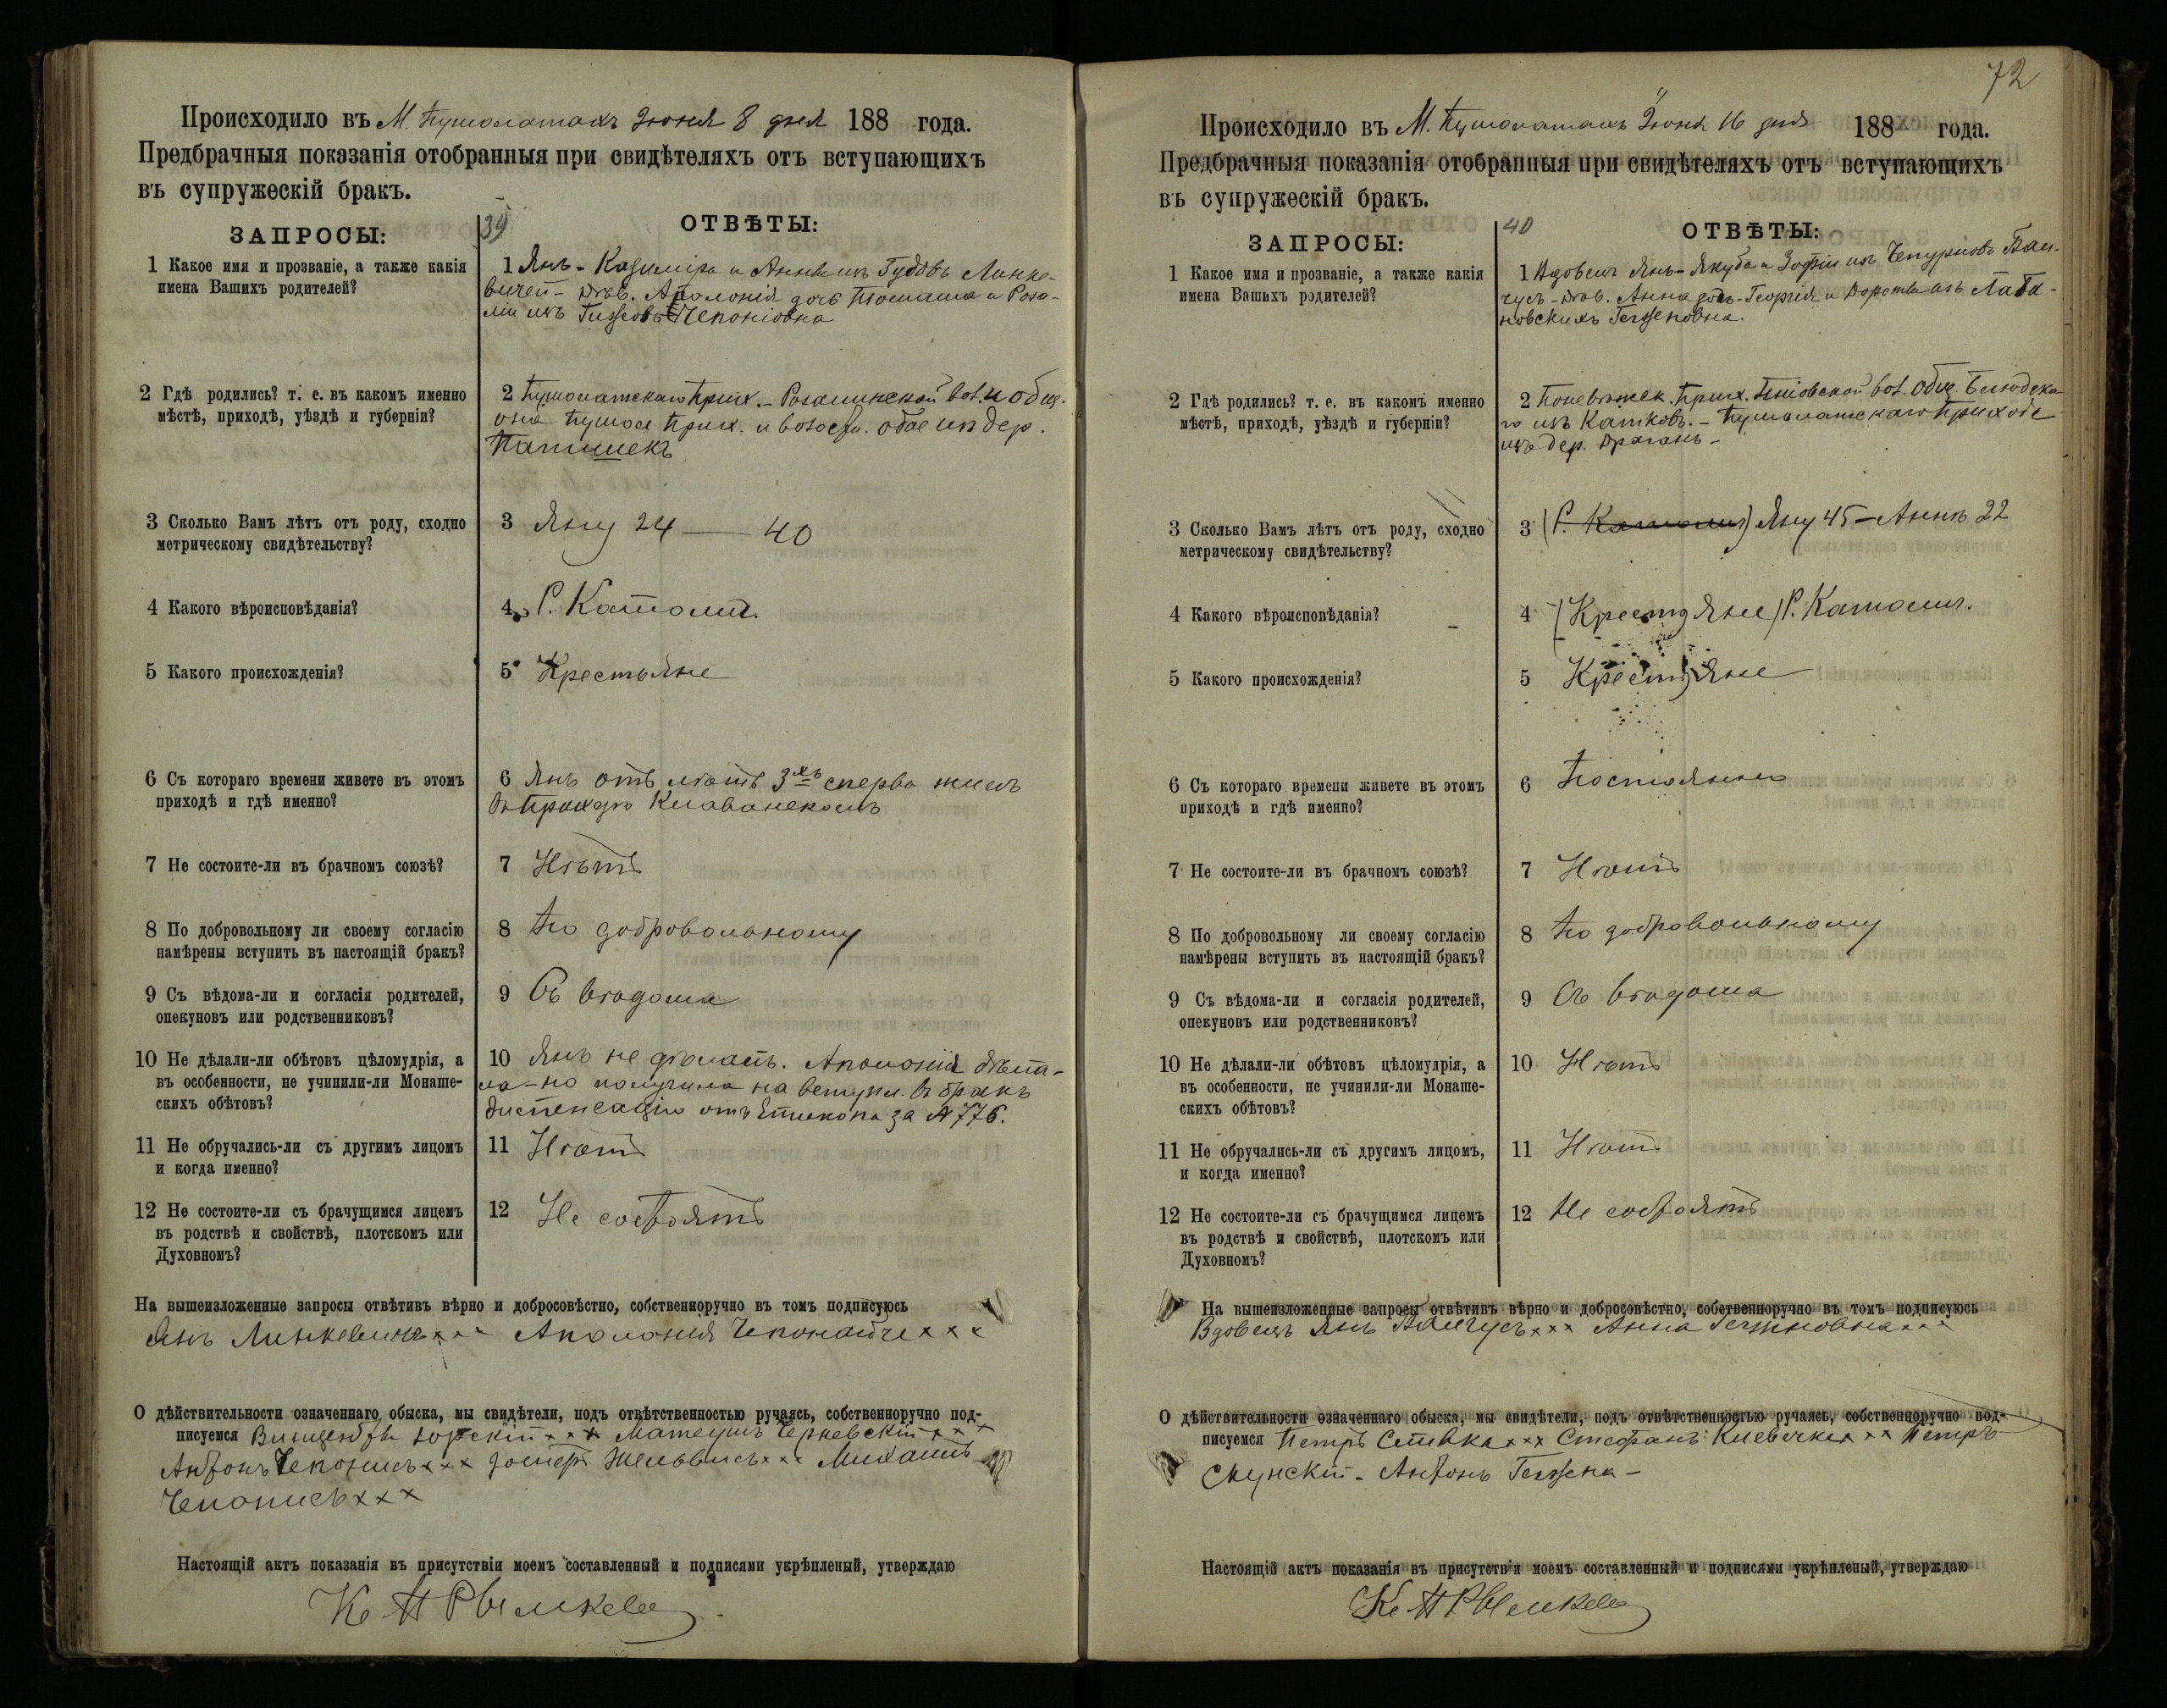 Происходило въ М. Пушолатахъ Іюня 8 дня 188 года.
Предбрачныя показанія отобранныя при свидѣтеляхъ отъ вступающихъ
въ супружескій бракъ.
39
ЗАПРОСЫ:
ОТВѢТЫ:
1 Какое имя и прозваніе, а также какія
имена Вашихъ родителей?
1 Янъ - Казиміра и Анны изъ Линке-
вичей - дѣв. Аполонія дочь Томаша и Роза-
ліи изъ Чепоніовна
2 Гдѣ родились? т. е. въ какомъ именно
мѣстѣ, приходѣ, уѣздѣ и губерніи?
2 Пушолатскаго Прих. - Розалинской вол. и общ.
она Пушол Прих. и волости. обое изъ дер.
3 Сколько Вамъ лѣтъ отъ роду, сходно
метрическому свидѣтельству?
3 Яну 24 — 40
4 Какого вѣроисповѣданія?
4 Р. Католич.
5 Какого происхожденія?
5 Крестьяне
6 Съ котораго времени живете въ этомъ
приходѣ и гдѣ именно?
6 Янъ отъ лѣтъ 3хъ сперва жилъ
въ Приходѣ Клованскомъ
7 Не состоите-ли въ брачномъ союзѣ?
7 Нѣтъ
8 По добровольному ли своему согласію
намѣрены вступить въ настоящій бракъ?
8 По добровольному
9 Съ вѣдома-ли и согласія родителей,
опекуновъ или родственниковъ?
9 Съ вѣдома
10 Не дѣлали-ли обѣтовъ цѣломудрія, а
въ особенности, не учинили-ли Монаше-
скихъ обѣтовъ?
10 Янъ не дѣлалъ. Аполонія дѣла-
ла - но получила на вступл. въ бракъ
диспенсацію отъ Епископа за № 776.
11 Не обручались-ли съ другимъ лицомъ
и когда именно?
11 Нѣтъ
12 Не состоите-ли съ брачущимся лицемъ
въ родствѣ и свойствѣ, плотскомъ или
Духовномъ?
12 Не состоятъ
На вышеизложенные запросы отвѣтивъ вѣрно и добросовѣстно, собственноручно въ томъ подписуюсь
Янъ Линкевичъ xxx Аполонія Чепонайце xxx
О дѣйствительности означеннаго обыска, мы свидѣтели, подъ отвѣтственностью ручаясь, собственноручно под-
писуемся Винцентъ Юрскій xxx Матеушъ Черневскій xxx
Антонъ Чепонисъ xxx Михаилъ
Чепонисъ xxx
Настоящій актъ показанія въ присутствіи моемъ составленный и подписями укрѣпленый, утверждаю
72
Происходило въ М. Пушолатахъ Іюня 16 дня 188 года.
Предбрачныя показанія отобранныя при свидѣтеляхъ отъ вступающихъ
въ супружескій бракъ.
40
ЗАПРОСЫ:
ОТВѢТЫ:
1 Какое имя и прозваніе, а также какія
имена Вашихъ родителей?
1 Вдовецъ Янъ - Якуба и Зофіи изъ Чепурновъ
дѣв. Анна дочь - Георгія и Доротеи изъ Лаба-
новскихъ
2 Гдѣ родились? т. е. въ какомъ именно
мѣстѣ, приходѣ, уѣздѣ и губерніи?
2 Поневѣжск. Прих. вол. Общ.
изъ - Пушолатскаго Прихода
изъ дер. Драганъ -
3 Сколько Вамъ лѣтъ отъ роду, сходно
метрическому свидѣтельству?
3 (Р. Католич) Яну 45 - Аннѣ 22
4 Какого вѣроисповѣданія?
4 (Крестьяне) Р. Католич.
5 Какого происхожденія?
5 Крестьяне
6 Съ котораго времени живете въ этомъ
приходѣ и гдѣ именно?
6 Постоянно
7 Не состоите-ли въ брачномъ союзѣ?
7 Нѣтъ
8 По добровольному ли своему согласію
намѣрены вступить въ настоящій бракъ?
8 По добровольному
9 Съ вѣдома-ли и согласія родителей,
опекуновъ или родственниковъ?
9 Съ вѣдома
10 Не дѣлали-ли обѣтовъ цѣломудрія, а
въ особенности, не учинили-ли Монаше-
скихъ обѣтовъ?
10 Нѣтъ
11 Не обручались-ли съ другимъ лицомъ,
и когда именно?
11 Нѣтъ
12 Не состоите-ли съ брачущимся лицемъ
въ родствѣ и свойствѣ, плотскомъ или
Духовномъ?
12 Не состоятъ
На вышеизложенные запросы отвѣтивъ вѣрно и добросовѣстно, собственноручно въ томъ подписуюсь
Вдовецъ Янъ xxx Анна xxx
О дѣйствительности означеннаго обыска, мы свидѣтели, подъ отвѣтственностью ручаясь, собственноручно под-
писуемся Петръ xxx Стефанъ xxx Петръ
Антонъ
Настоящій актъ показанія въ присутствіи моемъ составленный и подписями укрѣпленый, утверждаю